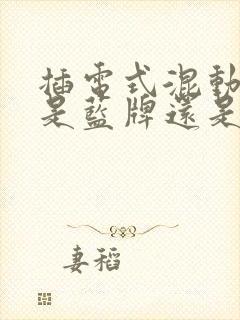 插電式混動
是藍牌還是
妻稻